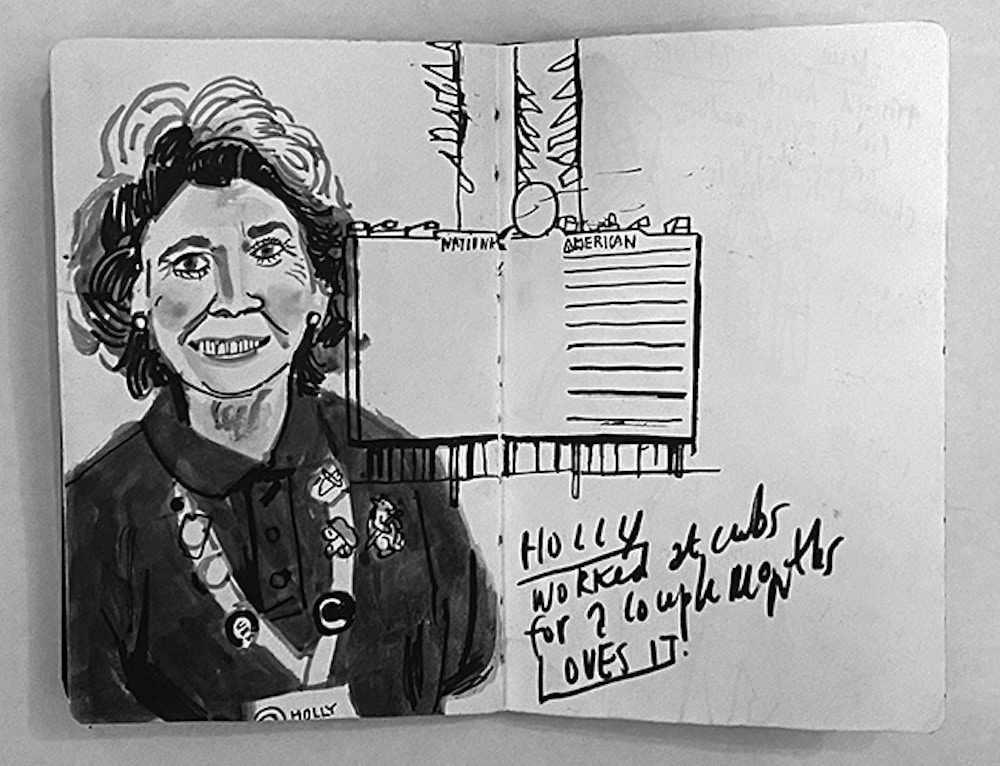 NATIONA
AMERICAN
HOLLY
WORKED at cubs
for a couple MONTHS
LOVES IT.
C
HOLLY